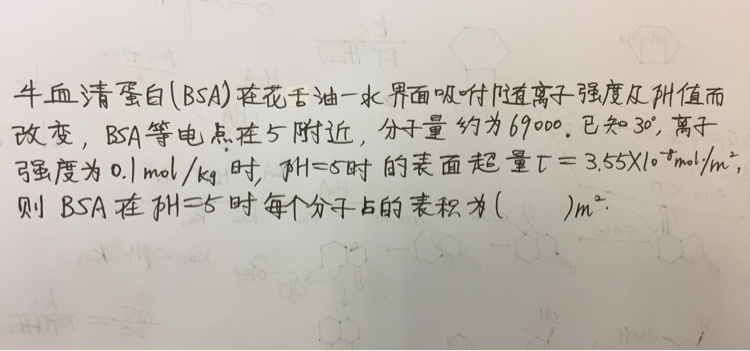 牛血清蛋白(BSA)在花舌油一水界面吸附随离子强度及PH值而
改变，BSA等电点在5附近，分子量约为69000。已知30°，离子
强度为0.1mol/kg时，PH=5时的表面超量τ=3.55X10⁻⁸mol/m²，
则BSA在PH=5时每个分子占的表积为(    )m²．